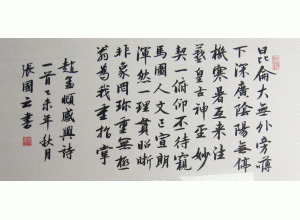 昆侖大無外旁礴
下深廣陰陽無停
機寒暑互來往
羲皇古神聖妙
契一俯仰不待窺
馬圖人文已宣朗
渾然一理貫昭晰
非象罔珍重無極
翁為我重指掌
趙孟頫感興詩
一首乙未年秋月
張國云書